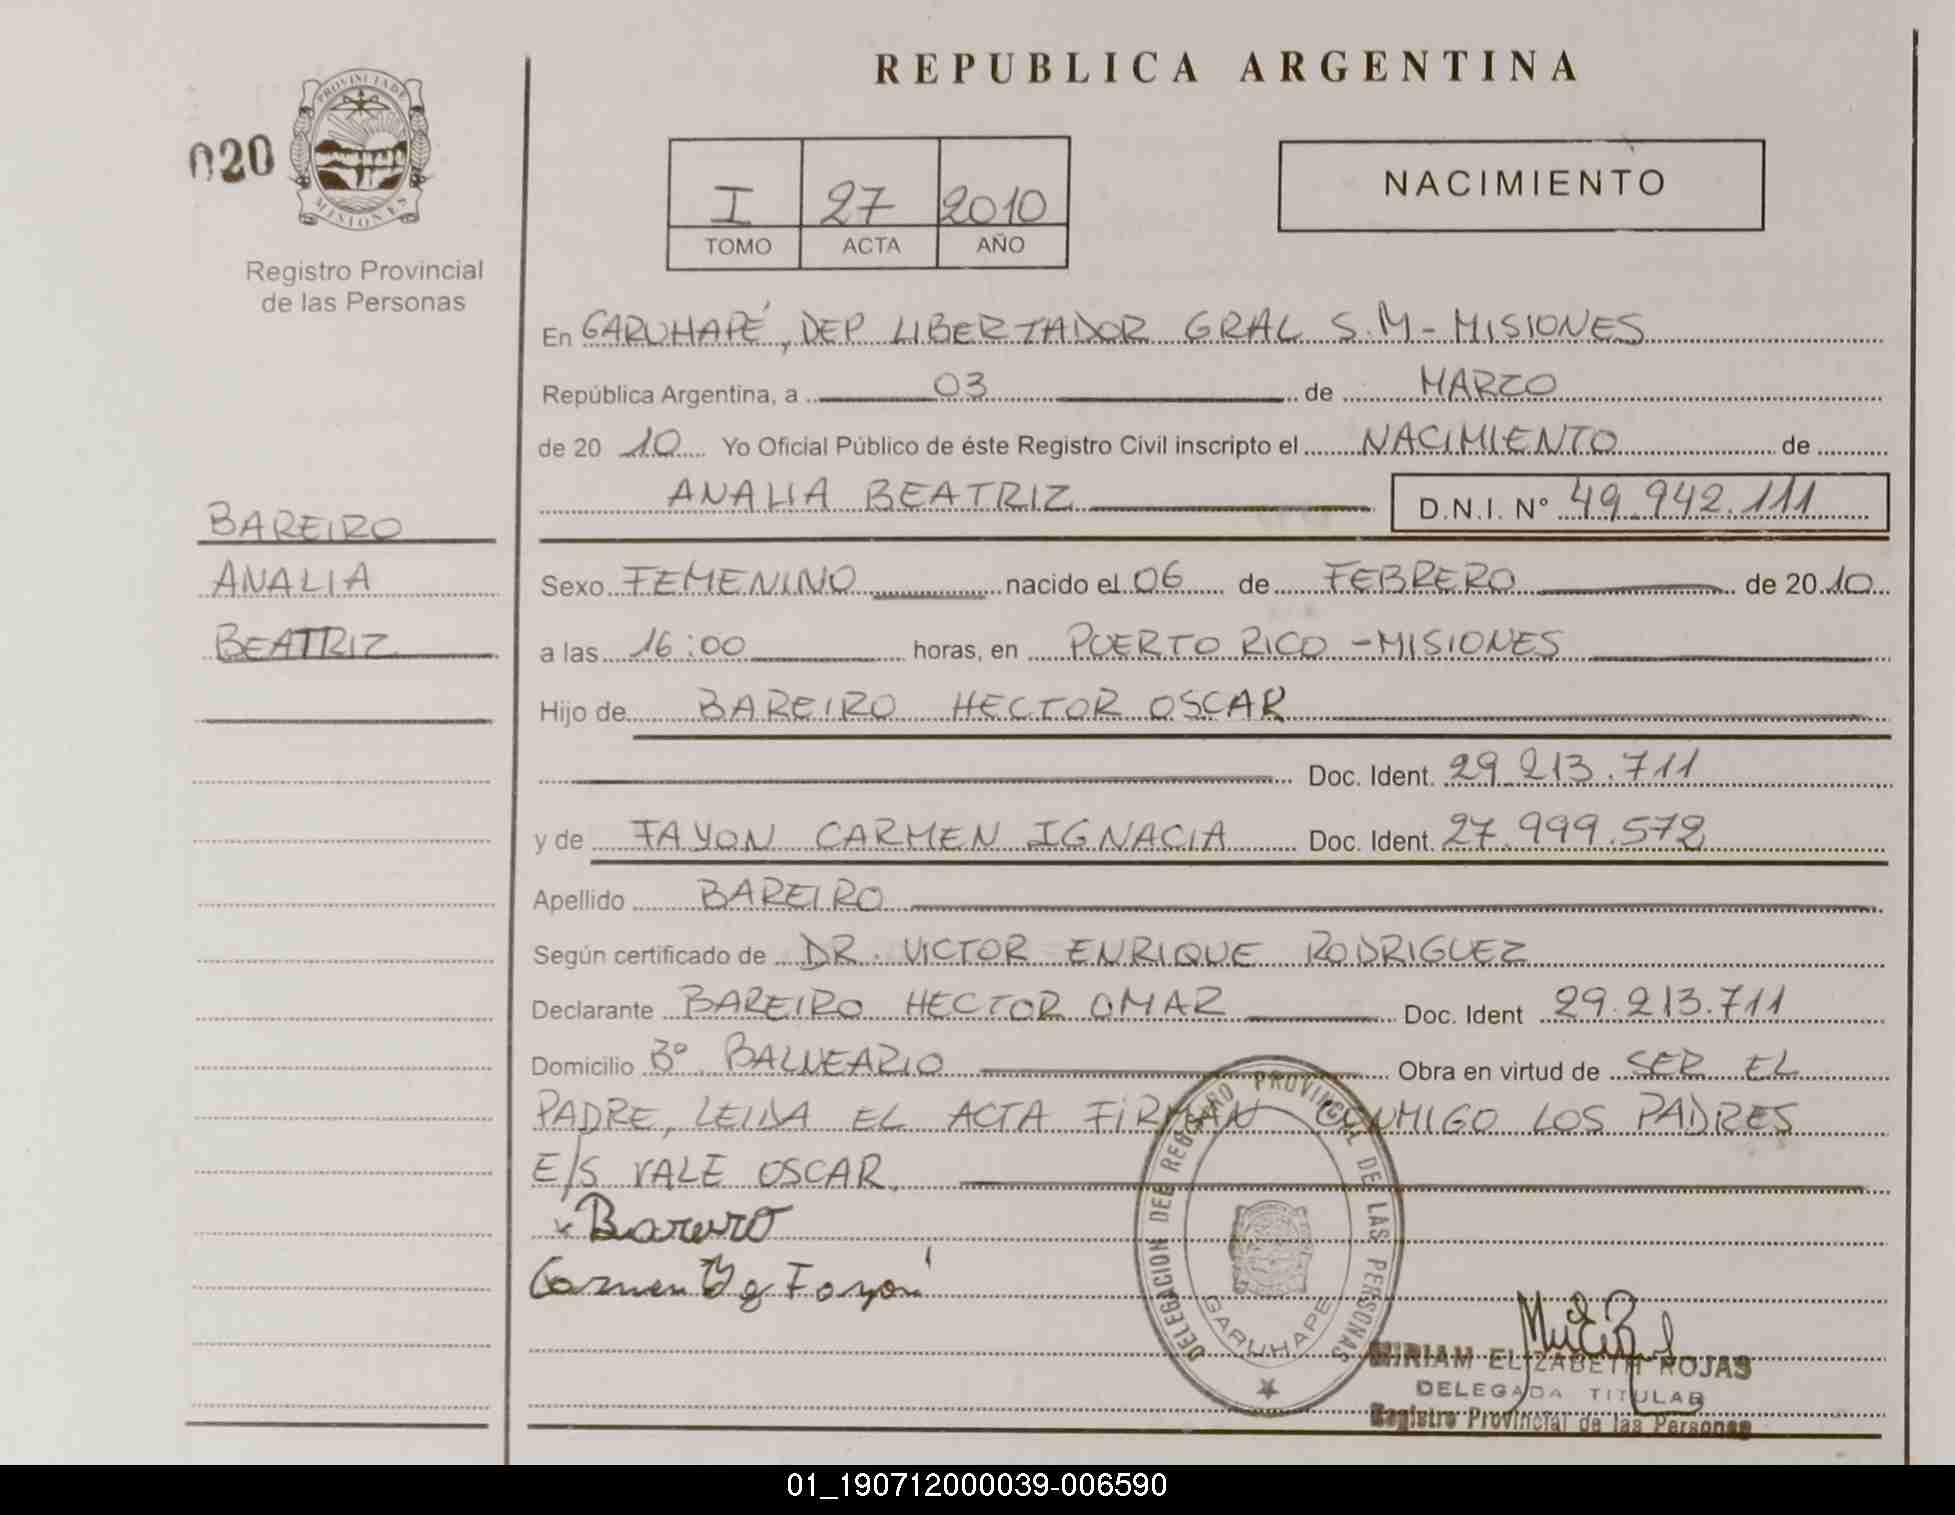 REPUBLICA ARGENTINA
020
PROVINCIA DE
MISIONES
Registro Provincial
de las Personas
I 27 2010
TOMO ACTA AÑO
NACIMIENTO
En GARUHAPÉ, DEP LIBERTADOR GRAL S.M - MISIONES
República Argentina, a 03 de MARZO
de 20 10 Yo Oficial Público de éste Registro Civil inscripto el NACIMIENTO de
ANALIA BEATRIZ D.N.I. Nº 49.942.111
BAREIRO
ANALIA
BEATRIZ
Sexo FEMENINO nacido el 06 de FEBRERO de 20 10
a las 16:00 horas, en PUERTO RICO - MISIONES
Hijo de BAREIRO HECTOR OSCAR
Doc. Ident. 29.213.711
y de FAYON CARMEN IGNACIA Doc. Ident. 27.999.572
Apellido BAREIRO
Según certificado de DR. VICTOR ENRIQUE RODRIGUEZ
Declarante BAREIRO HECTOR OMAR Doc. Ident 29.213.711
Domicilio Bº BALNEARIO Obra en virtud de SER EL
PADRE, LEIDA EL ACTA FIRMAN CONMIGO LOS PADRES
E/S VALE OSCAR.
x Bareiro
Carmen Yg Fayon
DELEGACION DEL REGISTRO PROVINCIAL DE LAS PERSONAS
GARUHAPE
MIRIAM ELIZABETH ROJAS
DELEGADA TITULAR
Registro Provincial de las Personas
01_190712000039-006590